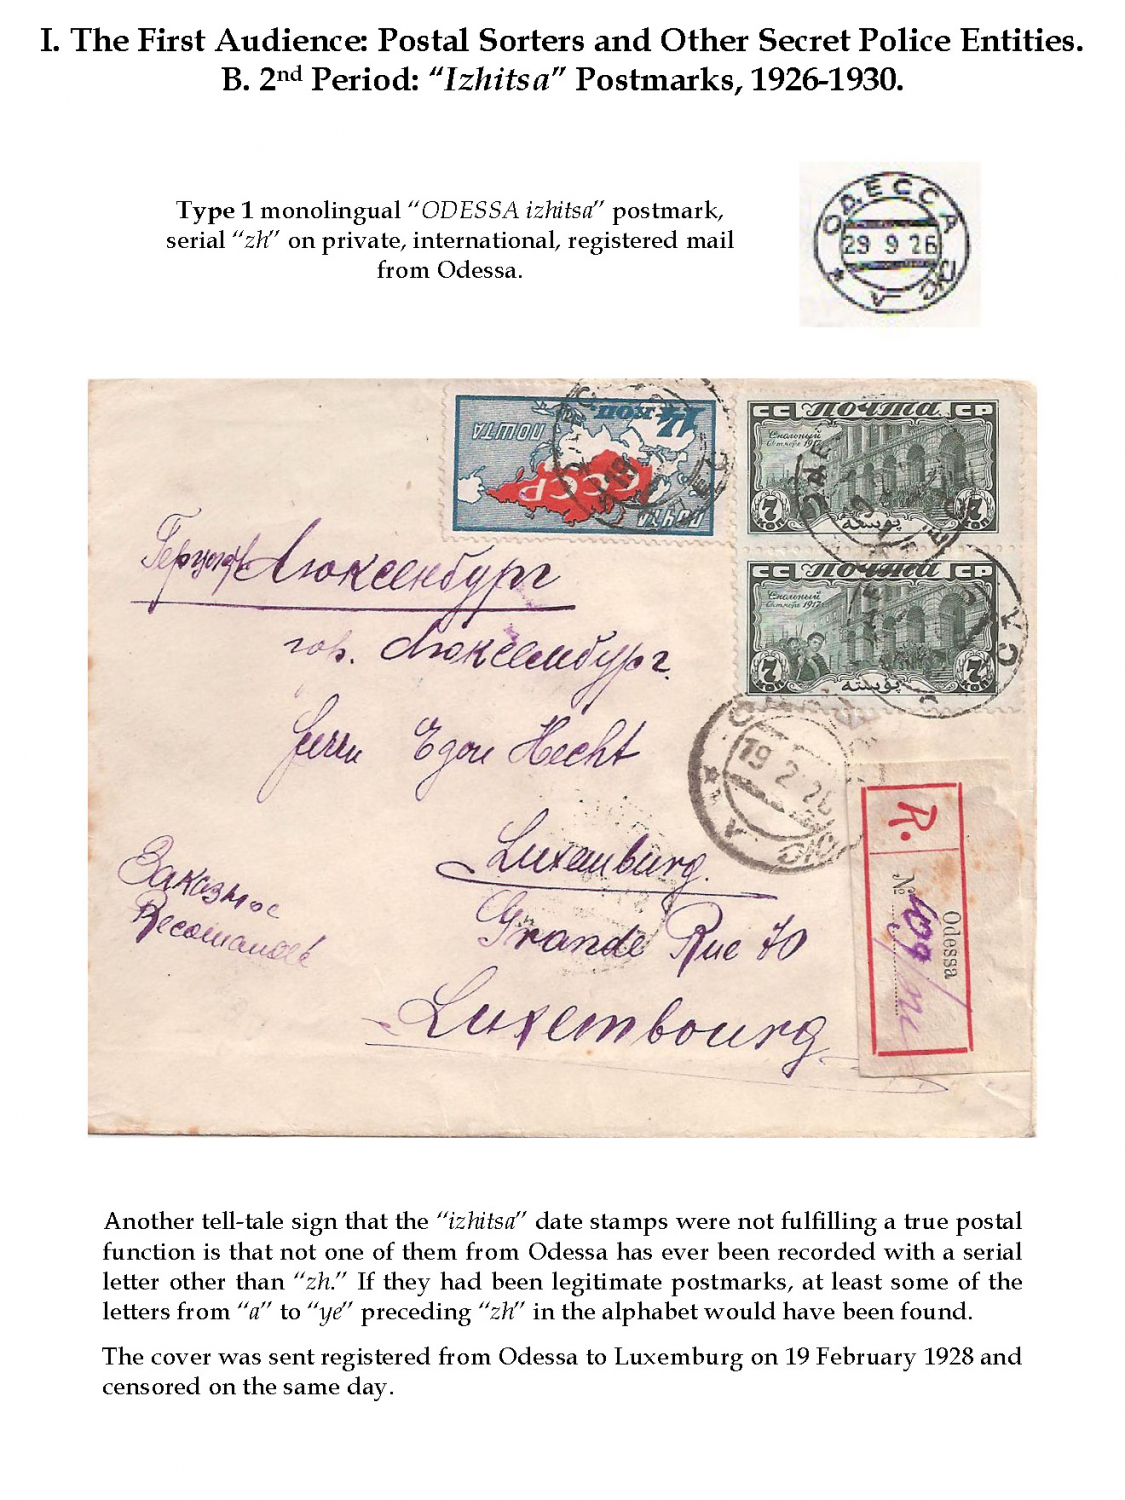 I. The First Audience: Postal Sorters and Other Secret Police Entities.
B. 2nd Period: “Izhitsa” Postmarks, 1926-1930.
Type 1 monolingual “ODESSA izhitsa” postmark,
serial “zh” on private, international, registered mail
from Odessa.
ОДЕССА
29 9 26
* V Ж
14 КОП
ПОШТА
СССР
ПОЧТА
СС ПОЧТА СР
Смольный
Октябрь 1917
7 КОП 7 КОП
پوسته
СС ПОЧТА СР
Смольный
Октябрь 1917
7 КОП 7 КОП
پوسته
Люксенбург
гор. Люксембург.
Herrn Egon Hecht
19 2 28
Ж
Luxemburg.
Grande Rue 70
Luxembourg
Заказное
Recomandé
R.
№ 109
Odessa
Another tell-tale sign that the “izhitsa” date stamps were not fulfilling a true postal
function is that not one of them from Odessa has ever been recorded with a serial
letter other than “zh.” If they had been legitimate postmarks, at least some of the
letters from “a” to “ye” preceding “zh” in the alphabet would have been found.
The cover was sent registered from Odessa to Luxemburg on 19 February 1928 and
censored on the same day.